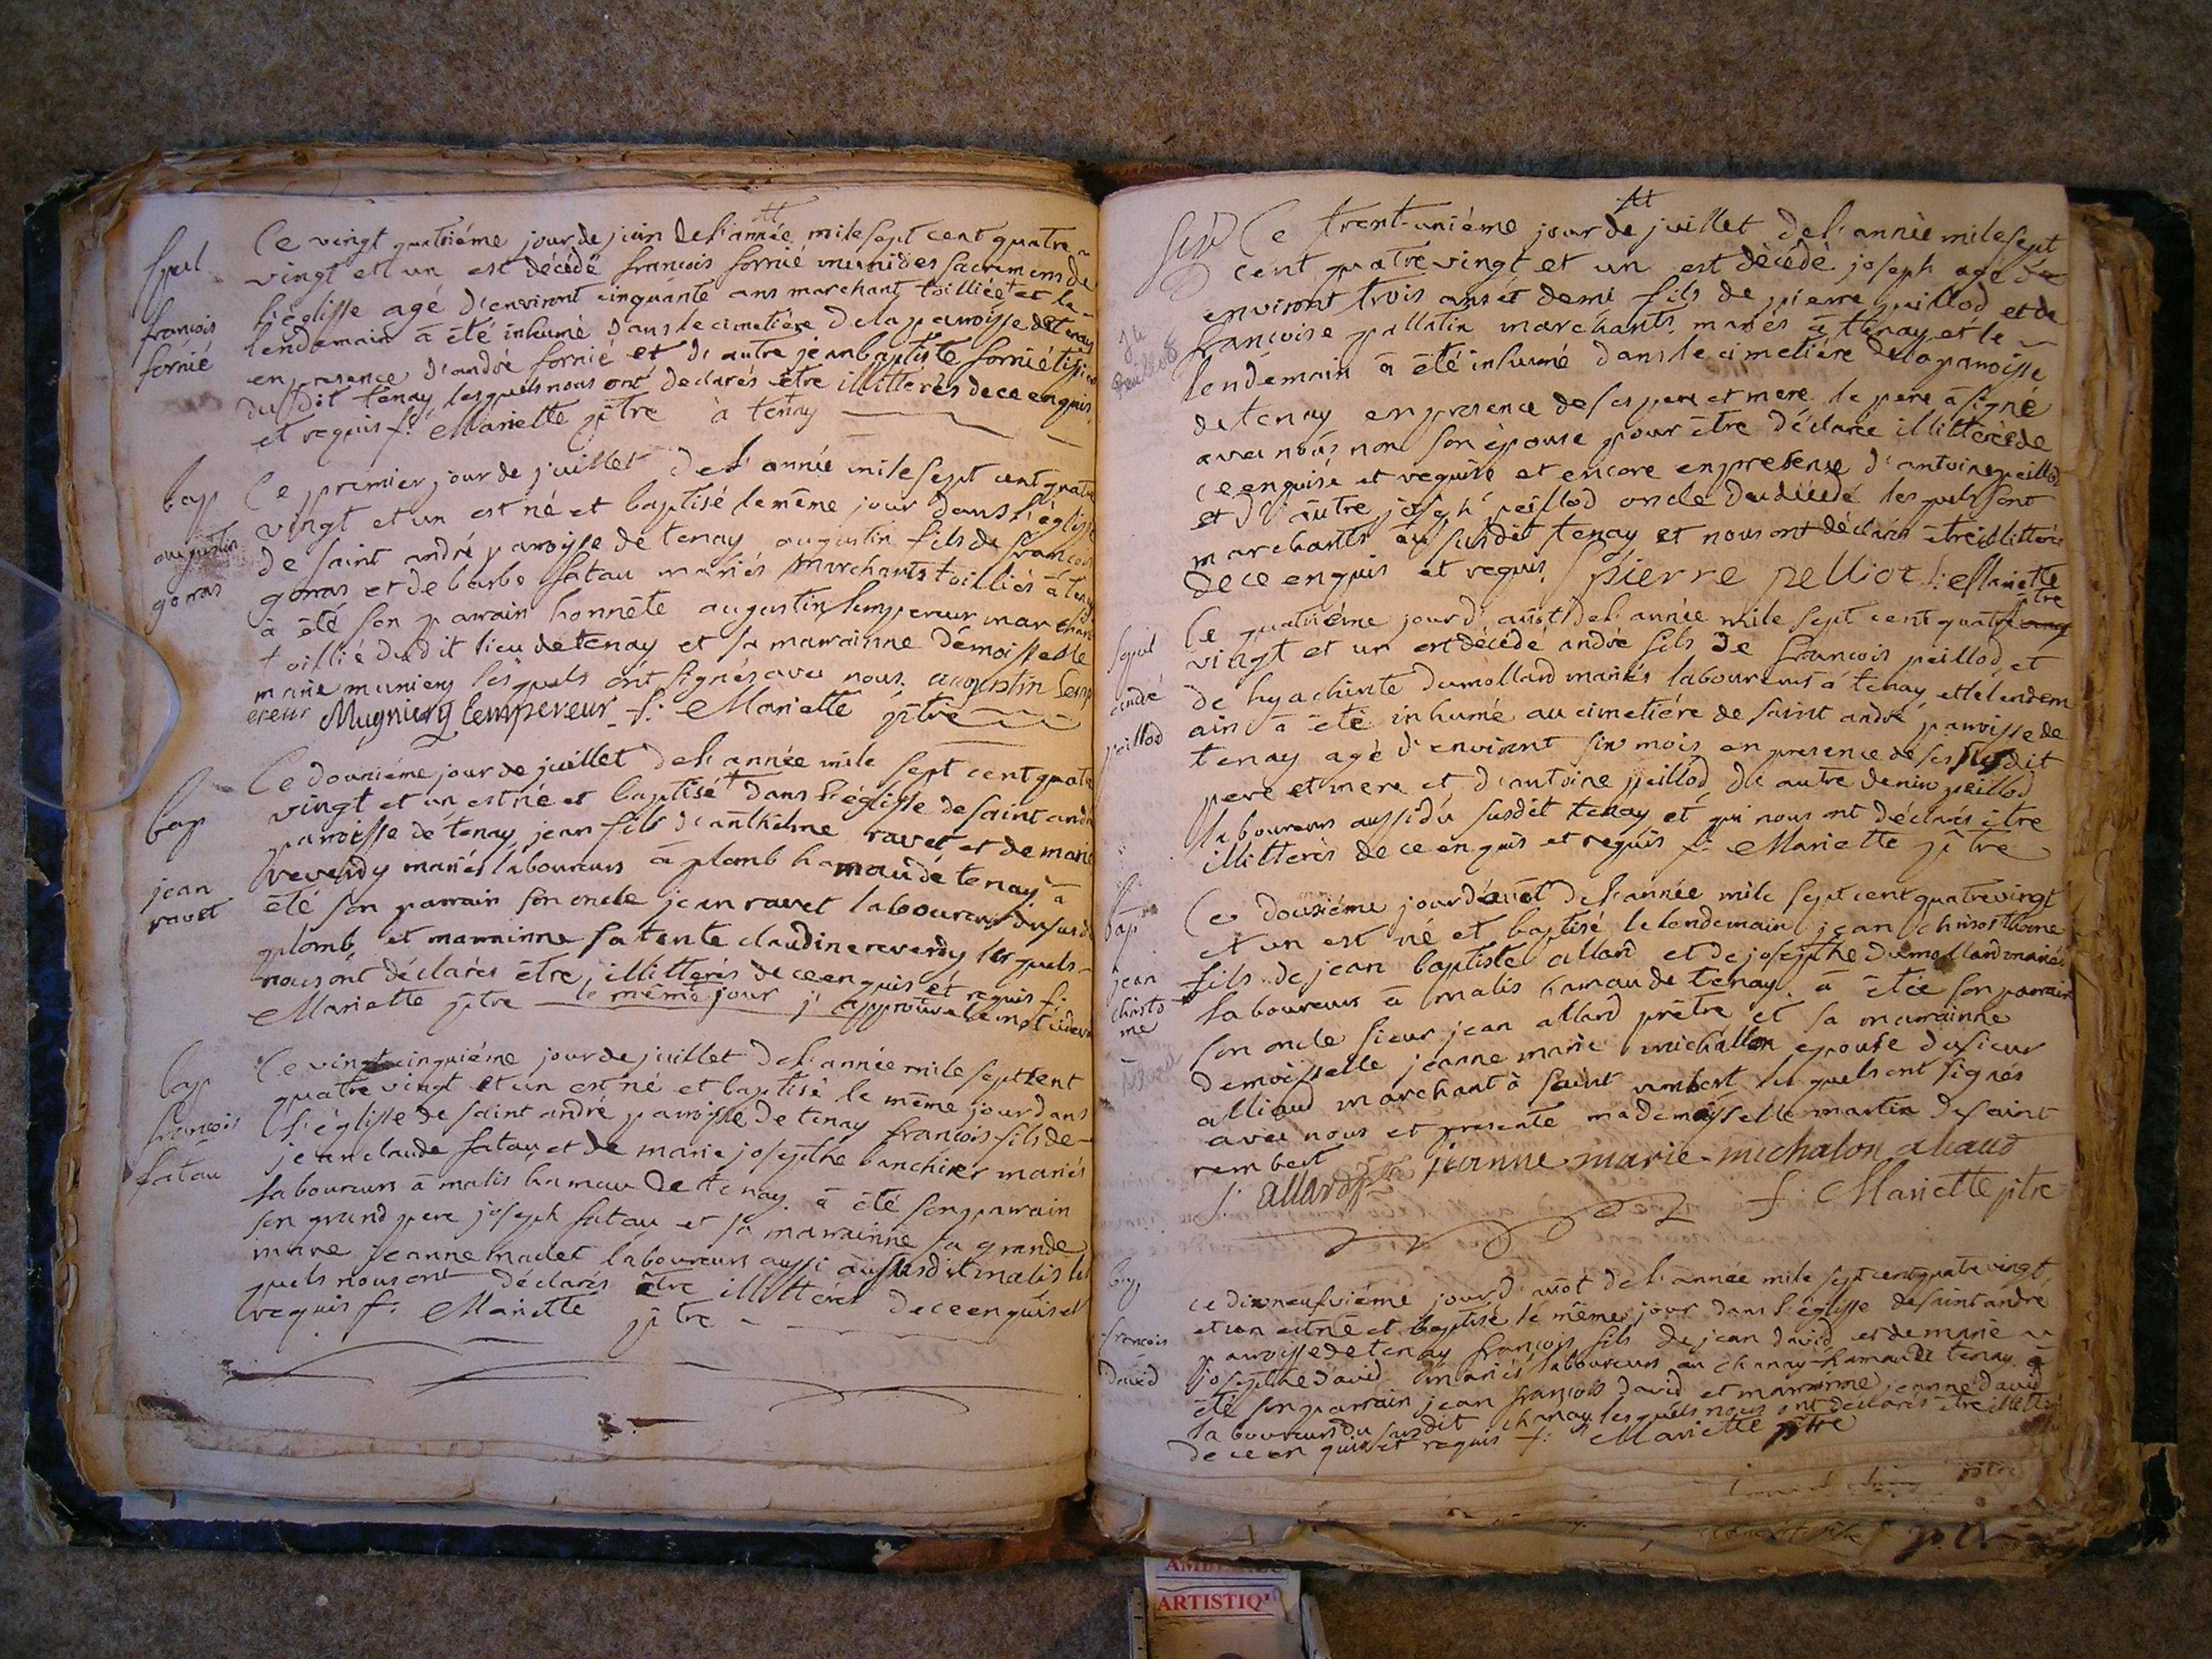 Sepul
françois
fornié
Ce vingt quatriéme jour de juin de l'année mile sept cent quatre
vingt et un est décédé francois fornié munides sacremens de
l'églisse agé d'environt cinquante ans marchant toilliée et le
lendemain à été inhumé dans le cimetiére de la paroisse de tenay
en presence d'andré fornié et d'autre jean baptiste fornié
du dit tenay lesquels nous ont declarés être illitterés de ce enquis
et requis f: Mariette p̃tre à tenay
bap
augustin
gonras
Ce premier jour de juillet de l'année mile sept cent quatre
vingt et un est né et baptisé le même jour dans l'églisse
de saint andré paroisse de tenay augustin fils de francois
gonras et de barbe fatau mariés marchants toilliés à tenay
à été son parain honnête augustin lempereur marchant
toillié dudit lieu de tenay et sa marainne démoisselle
marie muniery lesquels ont signés avec nous. augustin lemp
ereur Mugniery lempereur f: Mariette p̃tre
bap
jean
ravet
Ce douziéme jour de juillet de l'année mile sept cent quatre
vingt et un est né et baptisé + dans l'églisse de saint andré
paroisse de tenay jean fils d'anthelme ravet et de marie
reverdy mariés laboureurs à plomb hamau de tenay à
été son parain son oncle jean ravet laboureur du susdit
plomb et marainne sa tente claudine reverdy lesquels
nous ont déclarés être illitterés de ce enquis et requis f:
Mariette p̃tre le même jour j'approuve le mot cidevant
bap
francois
fatau
Ce vingt cinquiéme jour de juillet de l'année mile sept cent
quatre vingt et un est né et baptisé le même jour dans
l'églisse de saint andré paroisse de tenay francois fils de
jean claude fatau et de marie josephte banchirer mariés
laboureurs à malis hamau de tenay. à été son parain
son grand pere joseph fatau et sa marainne sa grande
mere jeanne mallet laboureurs aussi au susdit malis les
quels nous ont déclarés être illitterés de ce enquis et
requis f: Mariette p̃tre
Sep
je
peillod
Ce trent-uniéme jour de juillet de l'année mile sept
cent quatre vingt et un est décédé joseph agé de
environt trois ans et demi fils de pierre peillod et de
francoise pallatin marchants mariés à tenay et le
lendemain à été inhumé dans le cimetiére de la paroisse
de tenay en presence de ses pere et mere le pere à signé
avec nous non son épouse pour être déclarée illitterée de
ce enquise et requise et encore en presence d'antoine peillod
et d'autre joseph peillod oncle du décédé lesquels sont
marchants au susdit tenay et nous ont déclarés être illitterés
de ce enquis et requis. pierre pelliot f: Mariette
p̃tre
Sepul
andré
peillod
Ce quatriéme jour d'aust de l'année mile sept cent quatre
vingt et un est décédé andré fils de francois peillod et
de hyachinte dumolland mariés laboureurs à tenay et le lendem
ain à été inhumé au cimetiére de saint andré paroisse de
tenay agé d'environt six mois en presence de ses susdit
pere et mere et d'antoine peillod, de autre denin peillod
laboureurs aussi du susdit tenay et qui nous ont déclarés être
illitterés de ce enquis et requis f: Mariette p̃tre
bap
jean
christo
me
Ce douziéme jour d'aust de l'année mile sept cent quatre vingt
et un est né et baptisé le lendemain jean chrisosthome
fils de jean baptiste alland et de josephte dumolland mariés
laboureurs à malis hamau de tenay. à étée son parain
son oncle sieur jean alland prêtre et sa marainne
demoisselle jeanne marie michallon epouse du sieur
alliaud marchant à saint rambert lesquels ont signés
avec nous et presente mademoysselle martin de saint
rembert
J: Alland p̃tre jeanne marie michalon aliaud
f: Mariette p̃tre
bap
francois
david
ce dixneufviéme jour d'aust de l'année mile sept cent quatre vingt
et un est né et baptisé le même jour dans l'églisse de saint andré
paroisse de tenay francois fils de jean david et de marie
josephte david mariés laboureurs au chanay hamau de tenay à
été son parain jean francois david et marainne jeanne david
laboureurs du susdit chanay lesquels nous ont déclarés être illitterés
de ce enquis et requis f: Mariette p̃tre
ARTISTIQ